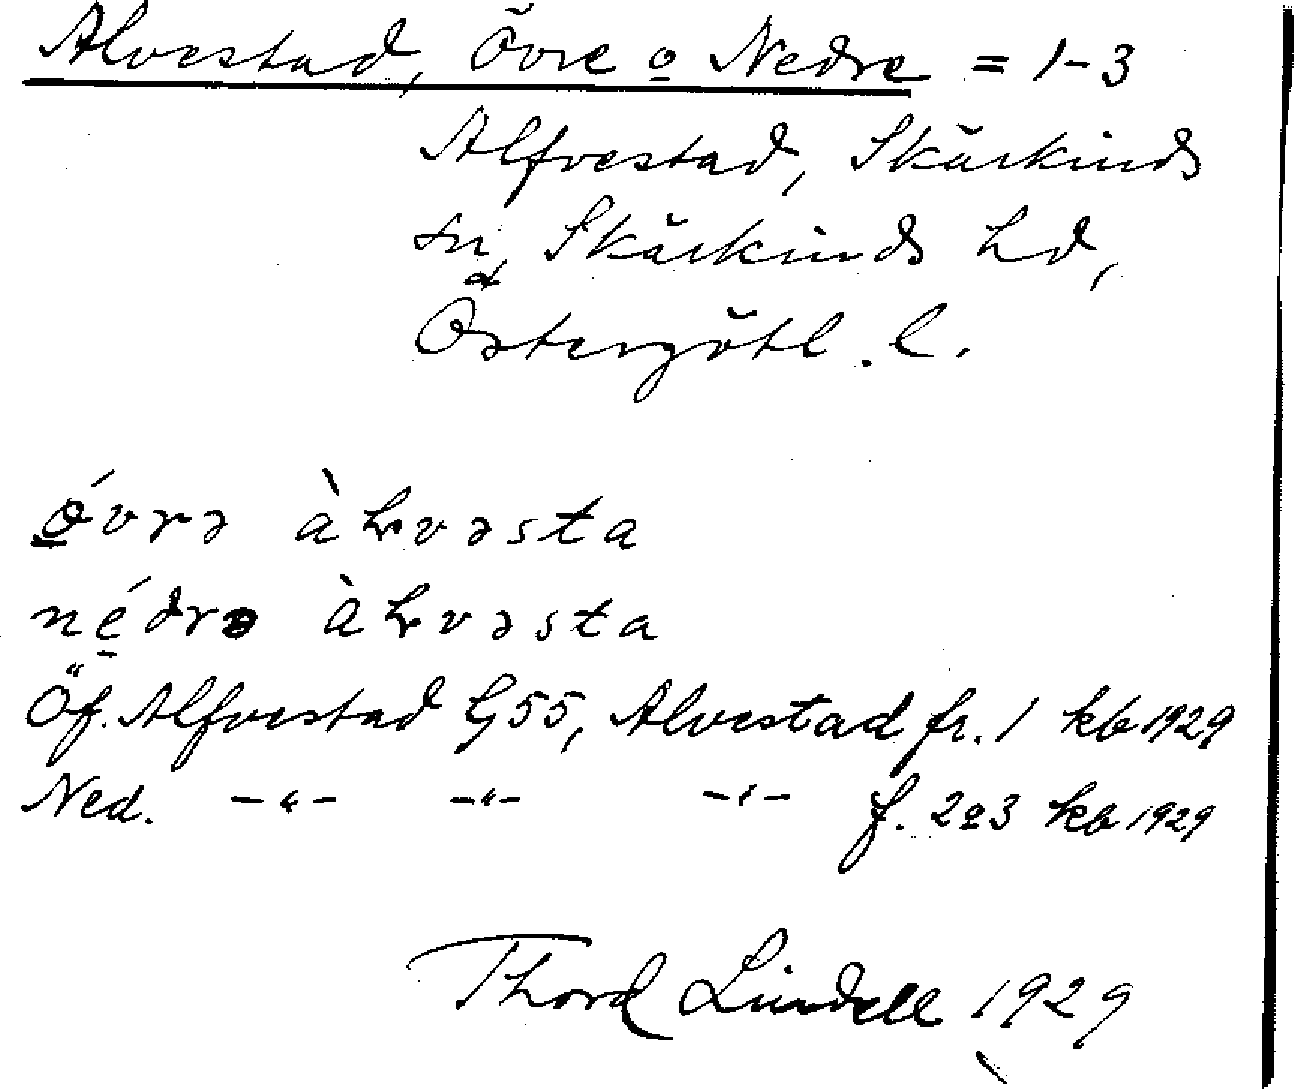 Alvestad, Övre o Nedre = 1-3
Alfvestad, Skärkinds
sn, Skärkinds hd,
Östergötl. l.
ǿvrə àɬvəsta
nédrə àɬvəsta
Öf. Alfvestad G55, Alvestad fr. 1 kb 1929
Ned. -"- -"- -"- f. 2o3 kb 1929
Thord Lindell 1929